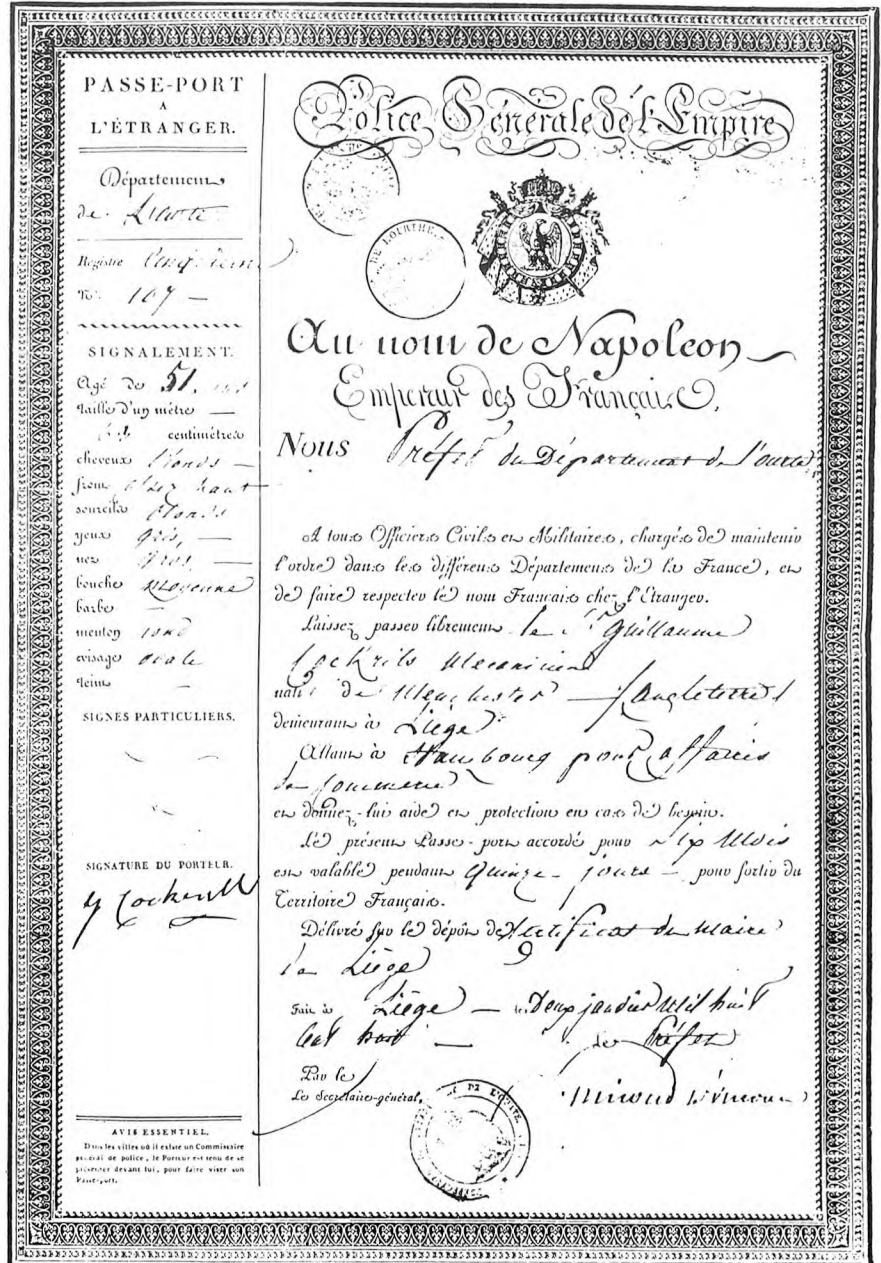 PASSE-PORT
A
L'ÉTRANGER.
Département
de
Registre
N.º 107 —
SIGNALEMENT.
Agé de 51. ans
taille d'un mètre —
centimètres
cheveux blonds —
front assez haut
sourcils blonds
yeux gris, —
nez gros, —
bouche moyenne
barbe —
menton rond
visage ovale
teint —
SIGNES PARTICULIERS.
SIGNATURE DU PORTEUR.
Cockerill
AVIS ESSENTIEL.
Dans les villes où il existe un Commissaire
général de police, le Porteur est tenu de se
présenter devant lui, pour faire viser son
Passe-port.
Police Générale de l'Empire
DE L'OURTHE
Au nom de Napoleon
Empereur des Français.
Nous Préfet du Département de l'Ourte
A tous Officiers Civils et Militaires, chargés de maintenir
l'ordre dans les différens Départemens de la France, et
de faire respecter le nom Français chez l'Étranger.
Laissez passer librement le Sr Guillaume
Cockrils Mecanicien
natif de Menchester — (Angleterre)
demeurant à Liège
Allant à Hambourg pour affaires
de Commerce
et donnez-lui aide et protection en cas de besoin.
Le présent Passe-port accordé pour Six Mois
est valable pendant Quinze jours — pour sortir du
Territoire Français.
Délivré sur le dépôt de Certificat du Maire
de Liège
Fait à Liège — le Deux janvier Mil huit
Cent huit — Le Préfet
Par le
Le Secrétaire-général,